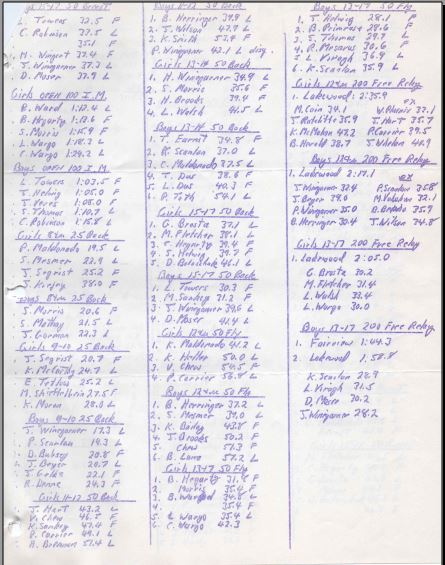 Boys 15-17 50 Breast
L. Towers 32.5 F
C. Robinson 37.5 L
35.1 F
H. Wingert 37.4 F
J. Winegarner 37.3 L
D. Moser 37.9 L
Girls OPEN 100 I.M.
B. Ward 1:12.4 L
B. Hegarty 1:13.6 F
S. Morris 1:15.9 F
L. Wargo 1:18.3 L
C. Wargo 1:24.2 L
Boys OPEN 100 I.M.
L. Towers 1:03.5 F
T. Helwig 1:05.0 F
T. Veres 1:08.0 F
S. Thomas 1:10.7 L
C. Robinson 1:15.8 L
Girls 8+un 25 Back
P. Maldonado 19.5 L
S. Mesmer 22.9 L
J. Segrist 25.2 F
S. 38.0 F
Boys 8+un 25 Back
S. Morris 20.6 F
S. Mathay 21.5 L
J. Gorman 22.3 L
Girls 9-10 25 Back
J. Segrist 20.7 F
K. McCarthy 24.7 L
E. 25.2 L
M. 27.5 F
K. Moran 28.0 L
Boys 9-10 25 Back
J. Winegarner 17.3 L
P. Scanlan 19.3 L
D. Bubsey 20.8 F
J. Beyer 20.7 L
J. 22.1 F
R. Donne 24.3 F
Girls 11-12 50 Back
J. Hart 43.2 L
V. Chew 46.5 F
K. Sandey 47.4 F
P. Carrier 49.1 L
A. Brennan 51.4 L
Boys 11-12 50 Back
1. B. Herringer 39.9 L
2. J. Wilson 42.9 L
K. Smith 52.9 F
P. Winegarner 42.1 L disq.
Girls 13-14 50 Back
1. H. Winegarner 34.9 L
2. S. Morris 35.6 F
3. H. Brooks 39.4 F
4. L. Walsh 41.5 L
Boys 13-14 50 Back
1. T. 34.8 F
2. K. Scanlon 37.0 L
3. C. Maldonado 37.5 L
4. T. Dus 38.6 F
5. L. Dus 40.3 F
6. P. Toth 54.1 L
Girls 15-17 50 Back
1. G. Brosta 37.1 L
2. M. Fletcher 38.1 L
3. C. Hegarty 39.4 F
4. S. Helwig 39.7 F
5. D. 46.1 L
Boys 15-17 50 Back
1. L. Towers 30.3 F
2. M. Sandey 31.2 F
3. J. Winegarner 39.6 L
4. D. Moser 41.4 L
Girls 12+un 50 Fly
1. K. Maldonado 41.2 L
2. K. Holler 50.0 L
3. V. Chew 54.5 F
4. P. Carrier 56.8 L
Boys 12+un 50 Fly
1. B. Herringer 37.2 L
2. S. Mesmer 39.0 L
3. K. Bailey 43.8 F
4. J. Brooks 50.2 F
5. Chew 51.3 F
6. B. Lano 57.2 L
Girls 13-17 50 Fly
1. B. Hegarty 31.8 F
2. Morris 35.4 F
3. B. Ward 34.8 L
4. 35.4 F
5. L. Wargo 35.4 L
6. C. Wargo 42.3
Boys 13-17 50 Fly
1. T. Helwig 28.1 F
2. B. Primrose 28.6 F
3. S. Thomas 29.7 L
4. P. Mesaros 30.6 F
5. L. Viragh 36.9 L
6. K. Scanlon 35.9 L
Girls 12+un 200 Free Relay
1. Lakewood 2:35.9
ex
M. Coin 39.1 W. Pharris 32.1
J. Ratcliffe 35.9 J. Hart 35.7
K. McMahon 42.2 P. Carrier 39.5
B. Harold 38.7 J. Whelan 42.9
Boys 12+un 200 Free Relay
1. Lakewood 2:17.1
ex
J. Winegarner 32.4 P. Scanlon 35.8
J. Beyer 39.0 M. 32.1
P. Winegarner 35.0 B. 35.9
B. Herringer 30.4 J. Wilson 34.8
Girls 13-17 200 Free Relay
1. Lakewood 2:05.0
G. Brosta 30.2
M. Fletcher 31.4
L. Walsh 33.4
L. Wargo 30.0
Boys 13-17 200 Free Relay
1. Fairview 1:44.3
2. Lakewood 1:58.8
K. Scanlon 28.9
L. Viragh 31.5
D. Moser 30.2
J. Winegarner 28.2